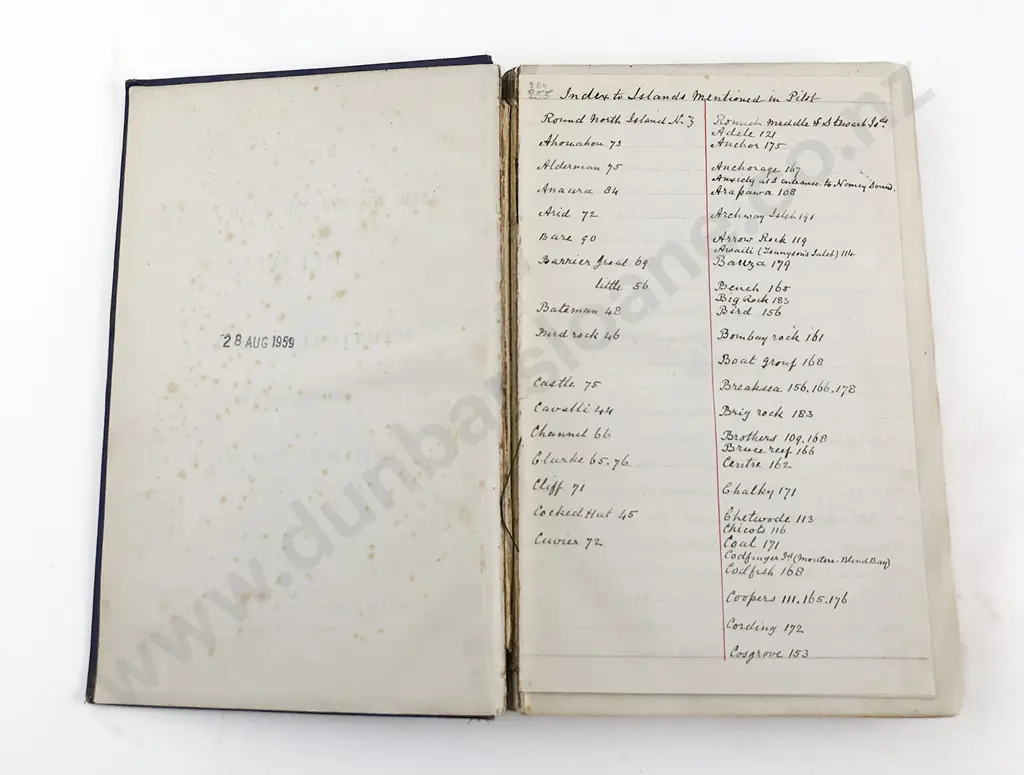 28 AUG 1959
264
255 Index to Islands Mentioned in Pilot
Round North Island N.Z
Ahouahou 73
Alderman 75
Anaura 84
Arid 72
Bare 90
Barrier Great 69
little 56
Bateman 48
Bird rock 46
Castle 75
Cavalli 44
Channel 66
Clarke 65.76
Cliff 71
Cocked Hat 45
Cuvier 72
Round Middle & Stewart Isds.
Adele 121
Anchor 175
Anchorage 167
Anxiety at S entrance to Nancy Sound.
Arapawa 108
Archway Islet 191
Arrow Rock 119
Awaiti (Tennyson's Inlet) 114
Bauza 179
Bench 165
Big Rock 183
Bird 156
Bombay rock 161
Boat group 168
Breaksea 156.166.178
Brig rock 183
Brothers 109.168
Bruce reef 166
Centre 162
Chalky 171
Chetwode 113
Chicots 116
Coal 171
Codfinger Isd (Mouterе Blind Bay)
Codfish 168
Coopers 111.165.176
Cording 172
Cosgrove 153
www.dunbarsloane.co.nz